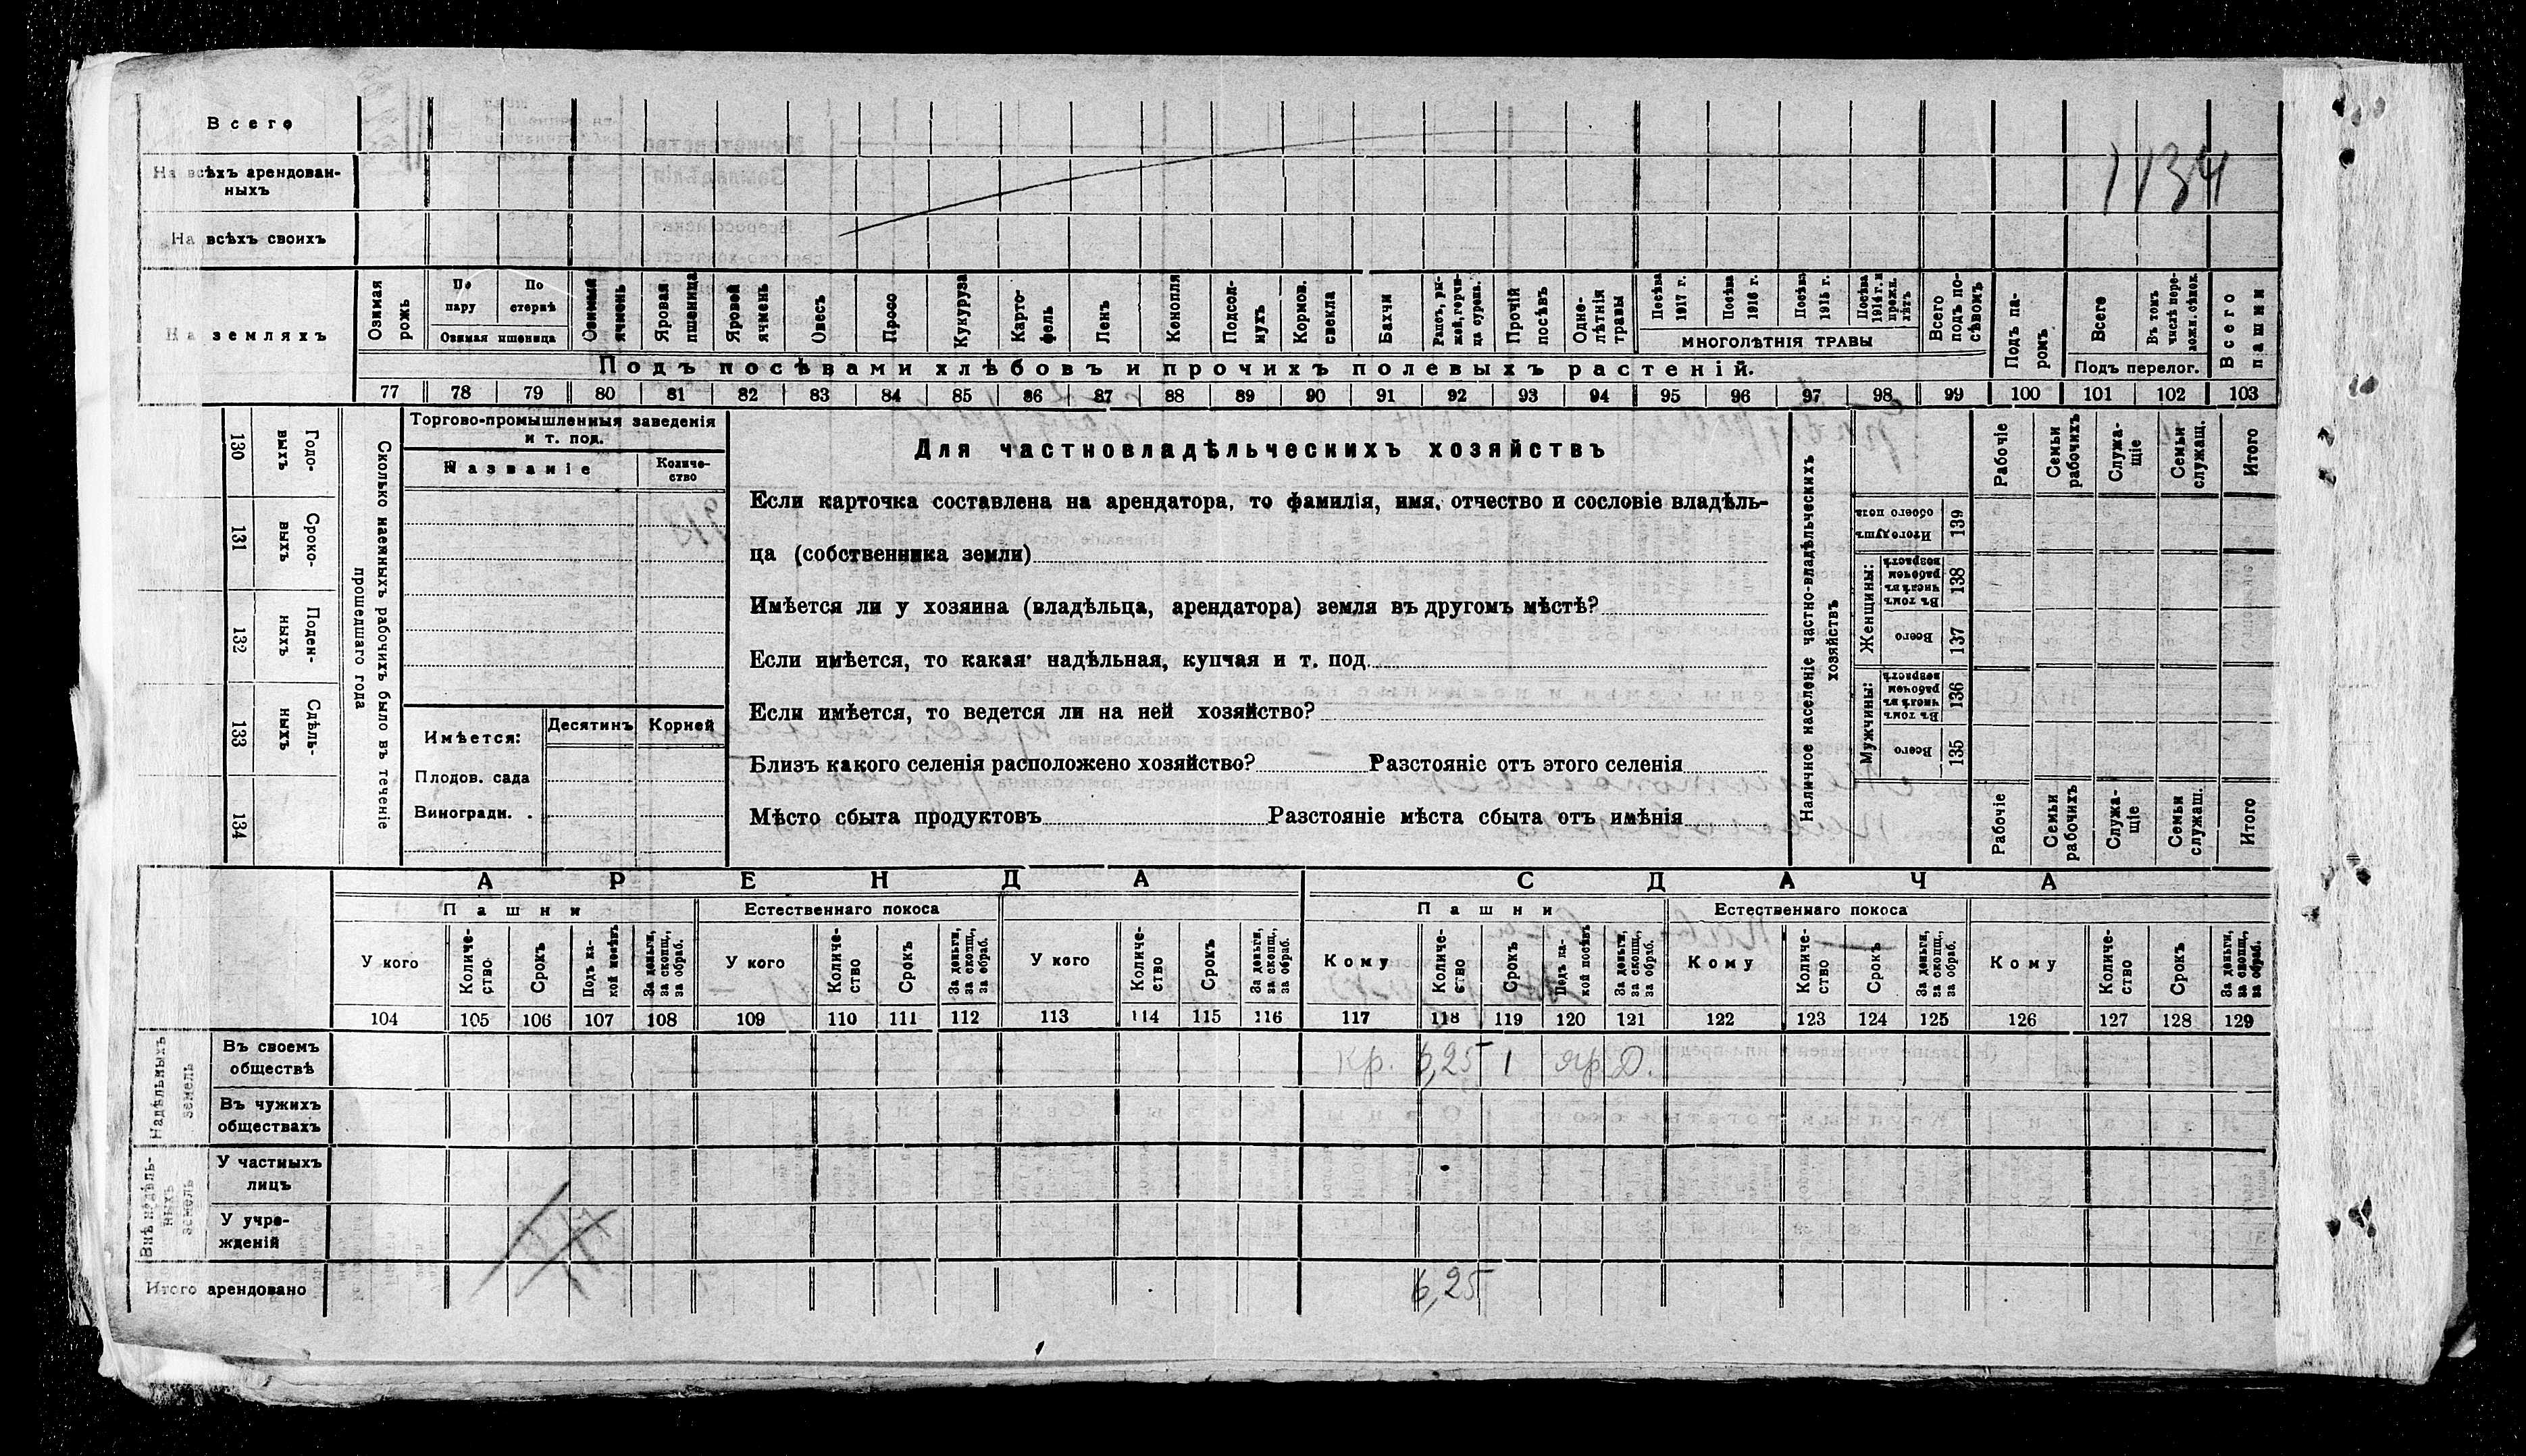 Всего
На всѣхъ арендован-
ныхъ
1134
На всѣхъ своихъ
На земляхъ
Озимая рожь
По пару
По стернѣ
Озимая пшеница
Озимый ячмень
Яровая пшеница
Яровой ячмень
Овесъ
Просо
Кукуруза
Карто-
фель
Ленъ
Конопля
Подсол-
нухъ
Кормов.
свекла
Бахчи
Рапсъ, ры-
жей, горчи-
ца сурепа.
Прочій
посѣвъ
Одно-
лѣтнія
травы
Посѣва
1917 г.
Посѣва
1916 г.
Посѣва
1915 г.
Посѣва
1914 г. и
прежн.
лѣтъ
МНОГОЛѢТНІЯ ТРАВЫ
Всего
подъ по-
сѣвомъ
Подъ па-
ромъ
Всего
Въ томъ
числѣ пере-
ложн. сѣнок.
Подъ перелог.
Всего
пашни
Подъ посѣвами хлѣбовъ и прочихъ полевыхъ растеній.
77 78 79 80 81 82 83 84 85 86 87 88 89 90 91 92 93 94 95 96 97 98 99 100 101 102 103
130
Годо-
выхъ
131
Сроко-
выхъ
132
Поден-
ныхъ
133
Сдѣль-
ныхъ
134
Сколько наемныхъ рабочихъ было въ теченіе
прошедшаго года
Торгово-промышленныя заведенія
и т. под.
Названіе
Количе-
ство
Имѣется:
Десятинъ
Корней
Плодов. сада
Виноградн. .
Для частновладѣльческихъ хозяйствъ
Если карточка составлена на арендатора, то фамилія, имя, отчество и сословіе владѣль-
ца (собственника земли)
Имѣется ли у хозяина (владѣльца, арендатора) земля въ другомъ мѣстѣ?
Если имѣется, то какая: надѣльная, купчая и т. под.
Если имѣется, то ведется ли на ней хозяйство?
Близъ какого селенія расположено хозяйство? Разстояніе отъ этого селенія
Мѣсто сбыта продуктовъ Разстояніе мѣста сбыта отъ имѣнія
Наличное населеніе частно-владѣльческихъ
хозяйствъ
Рабочіе
Семьи
рабочихъ
Служа-
щіе
Семьи
служащ.
Итого
Итого душъ
обоего пола
139
Женщины:
Въ томъ
числѣ въ
рабочемъ
возрастѣ
138
Всего
137
Мужчины:
Въ томъ
числѣ въ
рабочемъ
возрастѣ
136
Всего
135
Рабочіе
Семьи
рабочихъ
Служа-
щіе
Семьи
служащ.
Итого
АРЕНДА
СДАЧА
Пашни
Естественнаго покоса
Пашни
Естественнаго покоса
У кого
Количе-
ство
Срокъ
Подъ ка-
кой посѣвъ
За деньги,
за скопщ.,
за обраб.
У кого
Количе-
ство
Срокъ
За деньги,
за скопщ.,
за обраб.
У кого
Количе-
ство
Срокъ
За деньги,
за скопщ.,
за обраб.
Кому
Количе-
ство
Срокъ
Подъ ка-
кой посѣвъ
За деньги,
за скопщ.,
за обраб.
Кому
Количе-
ство
Срокъ
За деньги,
за скопщ.,
за обраб.
Кому
Количе-
ство
Срокъ
За деньги,
за скопщ.,
за обраб.
104 105 106 107 108 109 110 111 112 113 114 115 116 117 118 119 120 121 122 123 124 125 126 127 128 129
Надѣльныхъ
земель
Въ своемъ
обществѣ
кр. 6,25 1 яр Д.
Въ чужихъ
обществахъ
Внѣнадѣль-
ныхъ
земель
У частныхъ
лицъ
У учре-
жденій
Итого арендовано
6,25